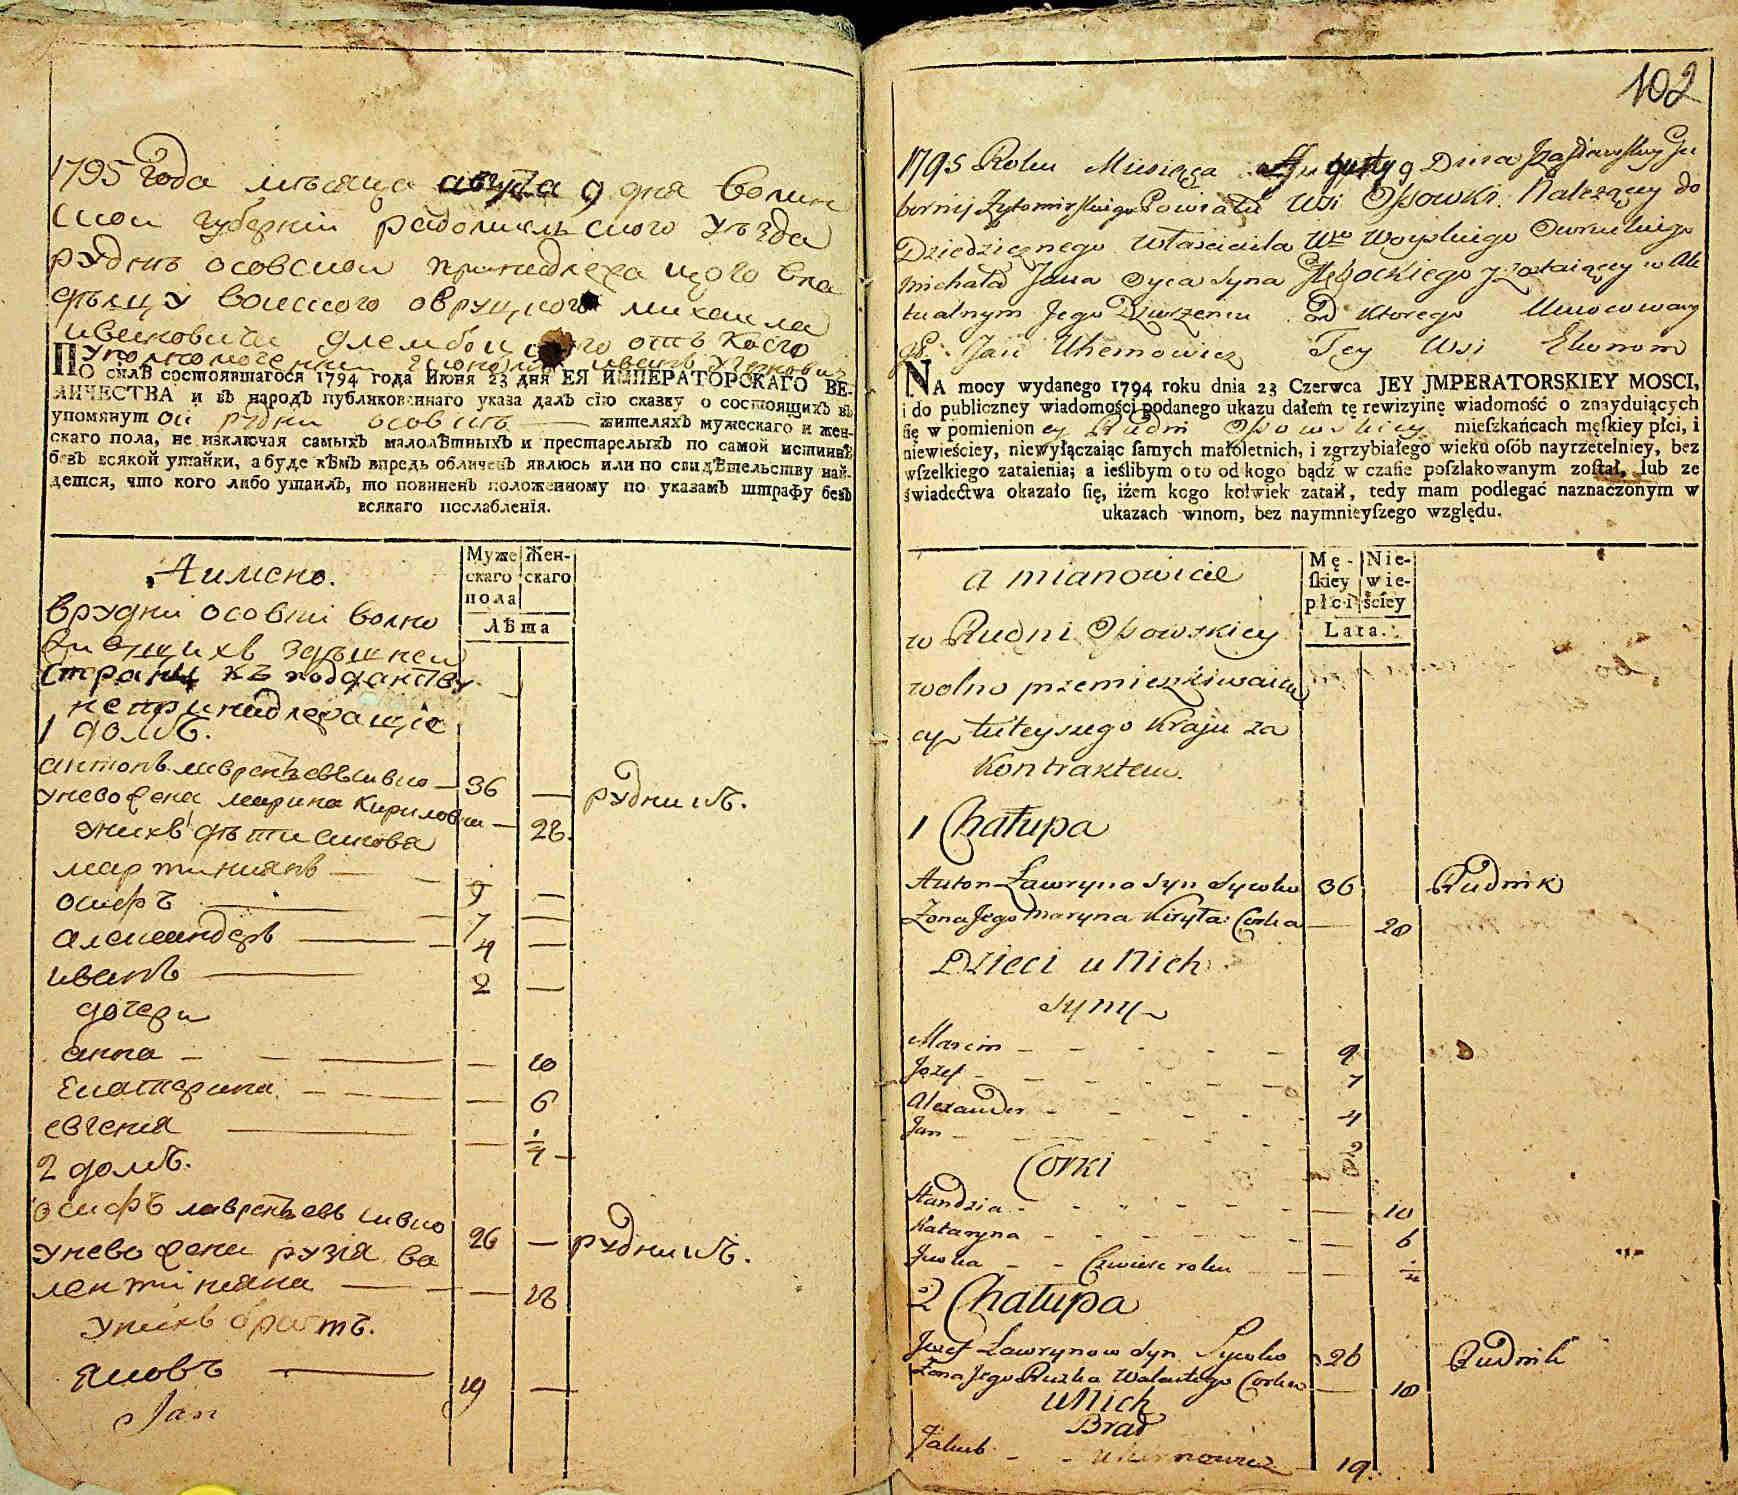 1795 года месяца августа 9 дня волин
ской губернїи радомысльского уѣзда
рудни осовской принадлежащого вла
дѣльцу войского овруцкого михаила
ивановича глембоцкого отъ коего
уполномоченний економъ иванъ
ПО силѣ состоявшагося 1794 года Июня 23 дня ЕЯ ИМПЕРАТОРСКАГО ВЕ-
ЛИЧЕСТВА и въ народъ публикованнаго указа далъ сію сказку о состоящихъ въ
упомянутой рудни осовскъ жителяхъ мужескаго и жен-
скаго пола, не изключая самыхъ малолѣтныхъ и престарелыхъ по самой истиннѣ
безъ всякой утайки, а буде кѣмъ впредь обличенъ явлюсь или по свидѣтельству най-
дется, что кого либо утаилъ, то повиненъ положенному по указамъ штрафу безъ
всякаго послабленія.
А имено.
Муже
скаго
пола
Жен-
скаго
Лѣта
в рудни осовскі волно
живущихъ здѣшней
страны къ подданству
непринадлежащіе
1 домъ.
антонъ лаврентьевъ сивко — 36 — рудникъ.
у нево жена марина кирилова — 28.
у нихъ дѣти синова
мартинианъ — 9 —
осифъ — 7 —
александеръ — 4 —
иванъ — 2 —
дочери
анна — 10
екатерина — 6
евгения — ¼ —
2 домъ.
осифъ лаврентьевъ сивко 26 — рудникъ.
у нево жена рузія ва
лентиняна — 18
у нихъ братъ.
яковъ — 19 —
Jan
102
1795 Roku Miesiąca Augusta 9 Dnia Izasławskiey Gu
bernij Żytomirskiego Powiatu Wsi Osowki Należący do
Dziedzicznego Właściciela Wgo Woyskiego Owruckiego
Michała Jana Oyca Syna Głębockiego y zostaiącey w Ak
tualnym Jego Dzierżeniu od Ktorego Umocowany
Jan Uhernowicz Tey Wsi Ekonom
NA mocy wydanego 1794 roku dnia 23 Czerwca JEY JMPERATORSKIEY MOSCI,
i do publiczney wiadomości podanego ukazu dałem tę rewizyinę wiadomość o znayduiących
ſię w pomienioney Rudni Osowskiey mieſzkańcach męſkiey płci, i
niewieściey, niewyłączaiąc ſamych małoletnich, i zgrzybiałego wieku oſób nayrzetelniey, bez
wſzelkiego zataienia; a ieślibym o to od kogo bądź w czaſie poſzlakowanym zoſtał, lub ze
świadectwa okazało ſię, iżem kogo kolwiek zataił, tedy mam podlegać naznaczonym w
ukazach winom, bez naymnieyſzego względu.
a mianowicie
Mę-
ſkiey
płci
Nie-
wie-
ściey
Lata.
w Rudni Osowskiey
wolno przemieszkiwaią
cy tuteyszego Kraju za
Kontraktem.
1 Chałupa
Anton Ławryna Syn Sywko 36 Rudnik
Żona Jego Maryna Kiryła Corka — 28
Dzieci u Nich
Syny
Marcin — 9
Jozef — 7
Alexander — 4
Jan — 2
Corki
Handzia — 10
Kataryna — 6
Juwka — Czwierć roku — ¼
2 Chałupa
Jozef Ławrynow Syn Sywko 26 Rudnik
Żona Jego Ruzka Walentego Corka — 18
u Nich
Brat
Jakub — 19.
Uhernowicz